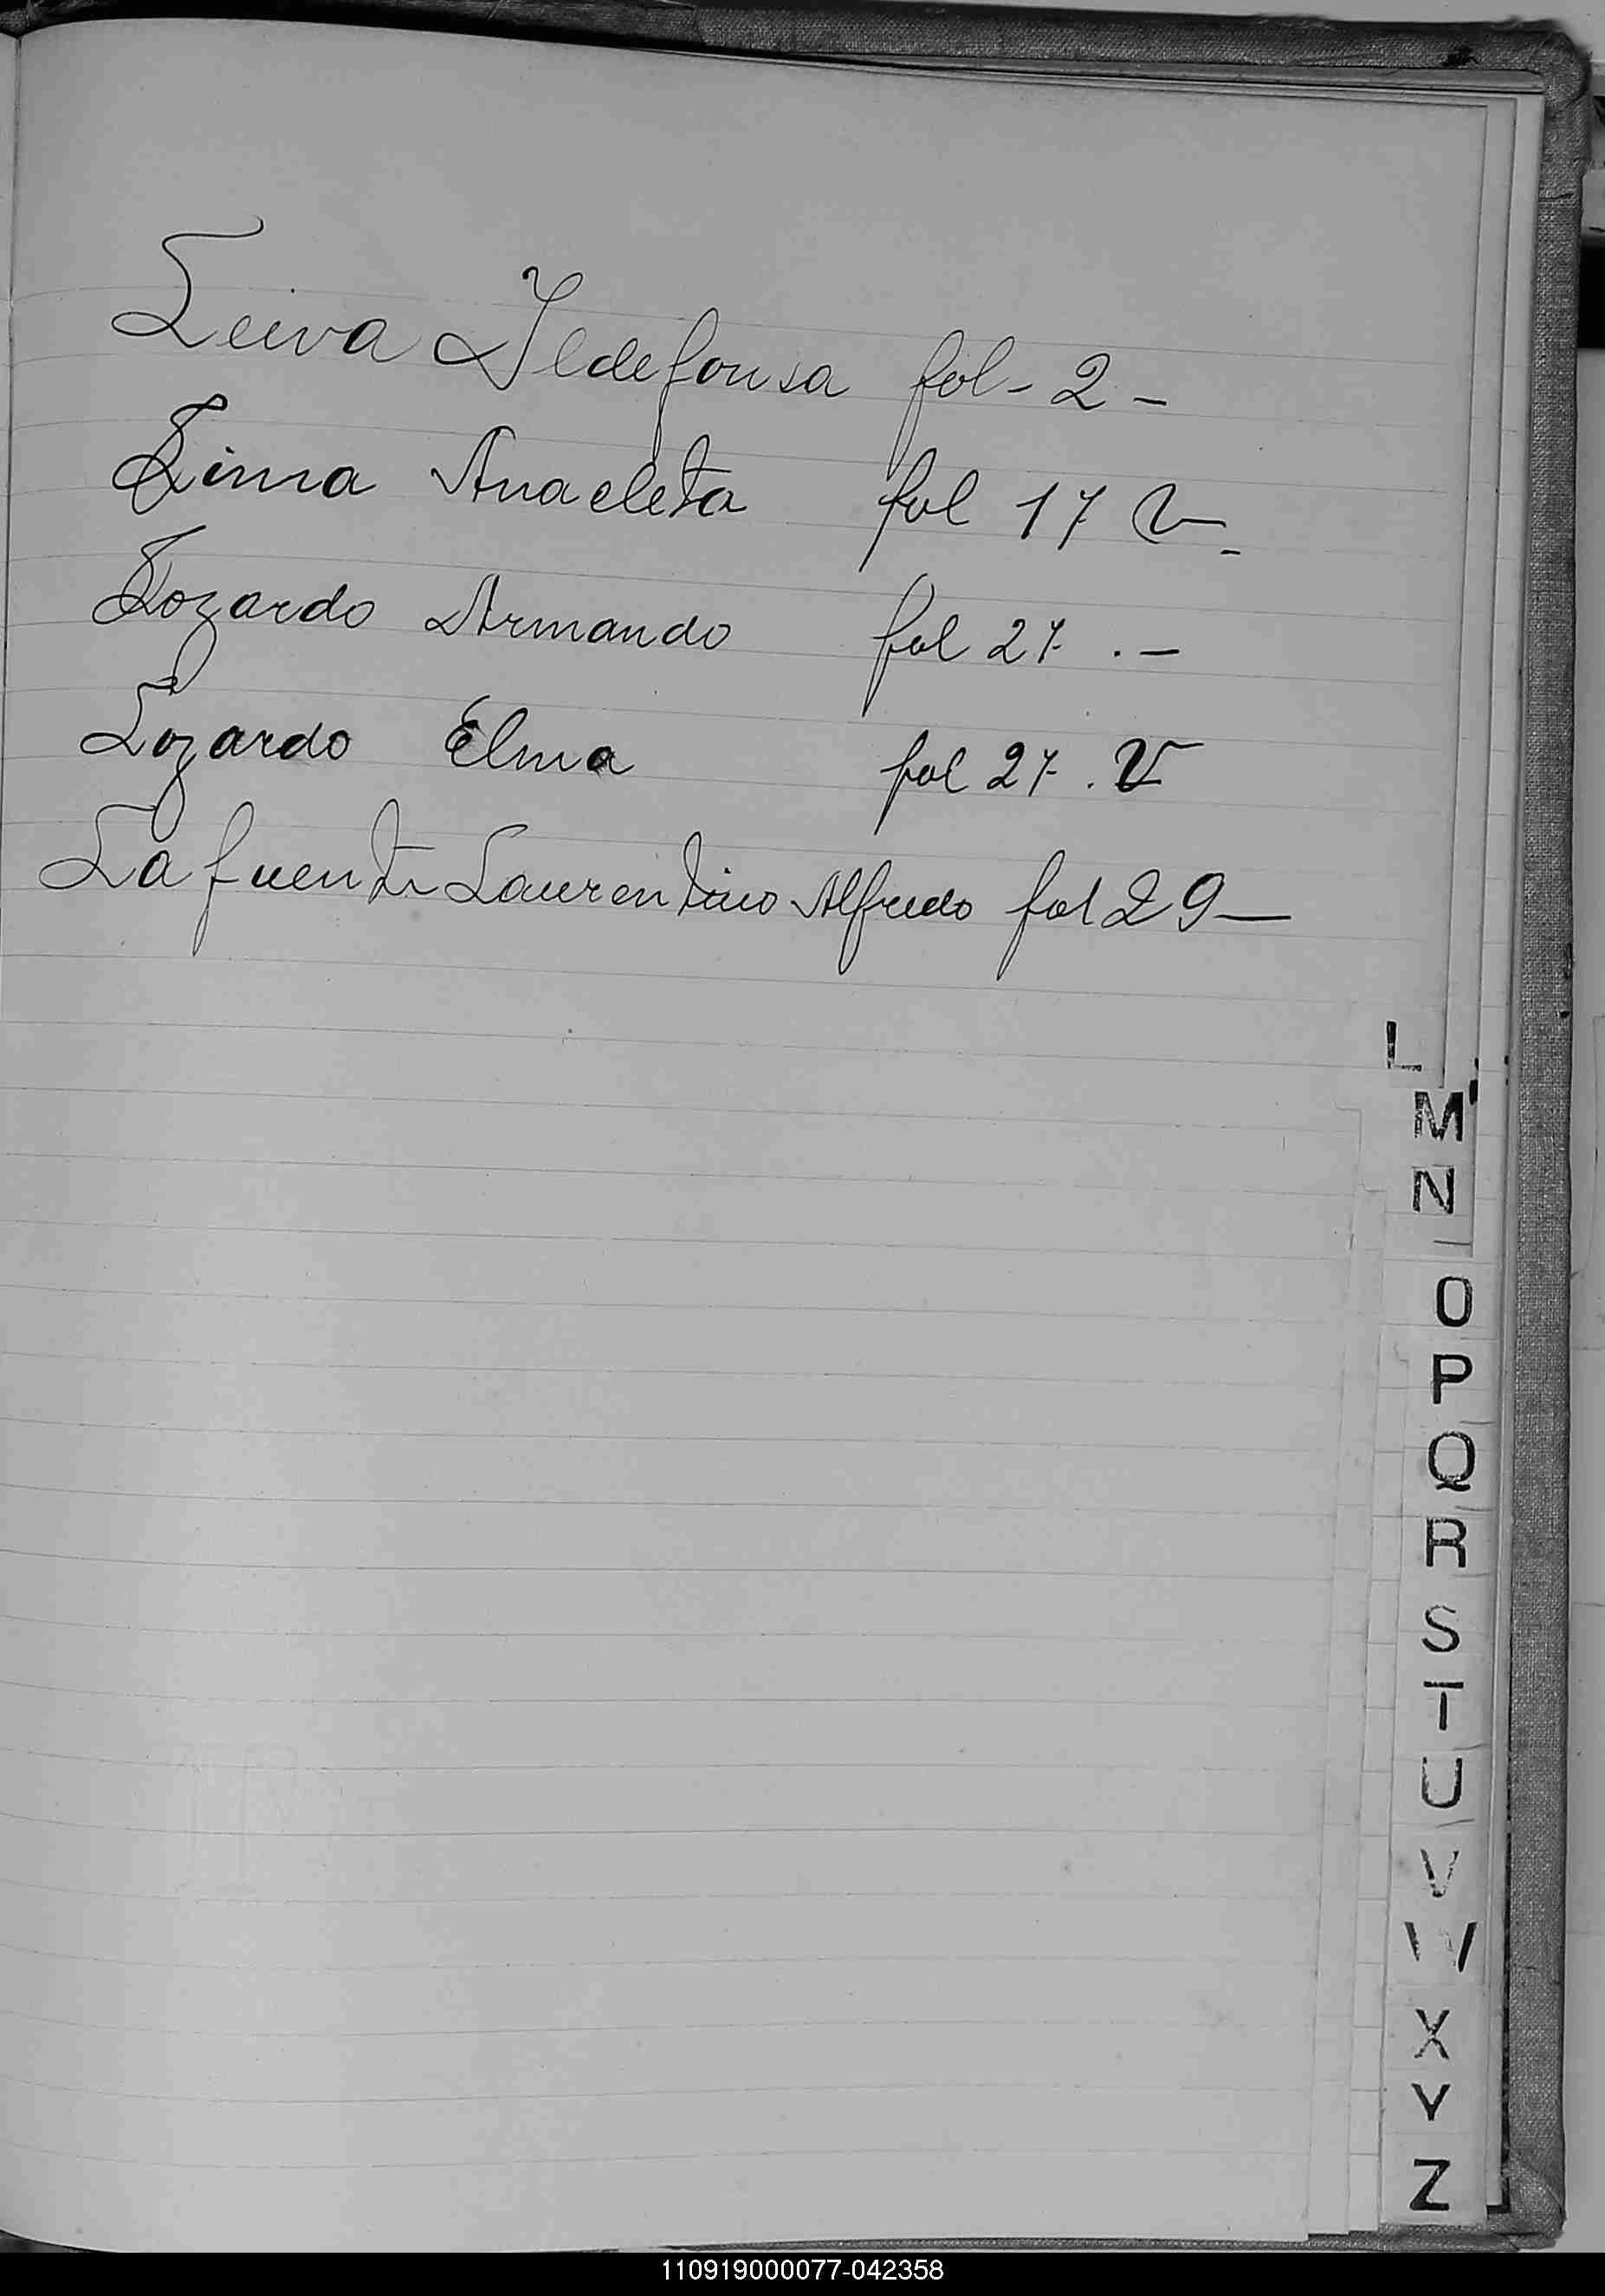 Leiva Ildefonsa fol - 2 -
Lima Anacleta fol 17 V -
Lozardo Armando fol 27 . -
Lozardo Elma fol 27 . V
Lafuente Laurentino Alfredo fol 29 -
L
M
N
O
P
Q
R
S
T
U
V
W
X
Y
Z
110919000077-042358